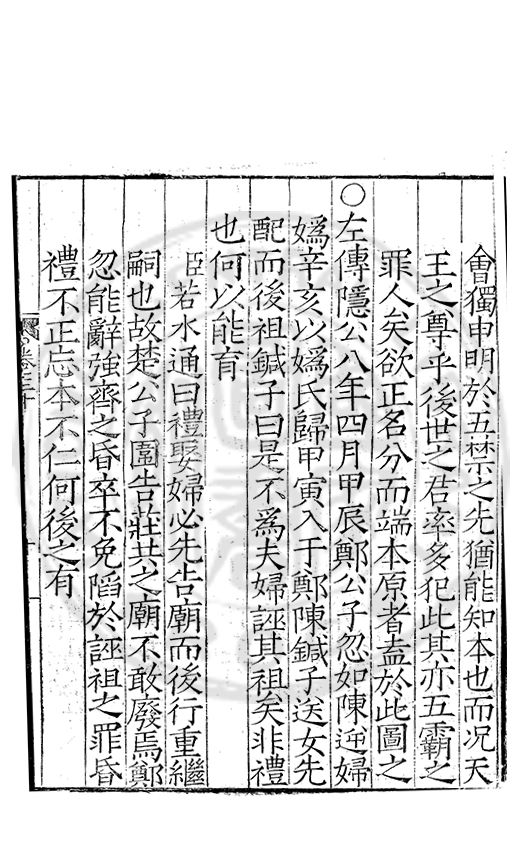 會獨申明於五禁之先猶能知本也而况天
王之尊乎後世之君率多犯此其亦五霸之
罪人矣欲正名分而端本原者盍於此圖之
○左傳隱公八年四月甲辰鄭公子忽如陳逆婦
媯辛亥以媯氏歸甲寅入于鄭陳鍼子送女先
配而後祖鍼子曰是不爲夫婦誣其祖矣非禮
也何以能育
臣若水通曰禮娶婦必先告廟而後行重繼
嗣也故楚公子圍告莊共之廟不敢廢焉鄭
忽能辭強齊之昏卒不免陷於誣祖之罪昏
禮不正忘本不仁何後之有